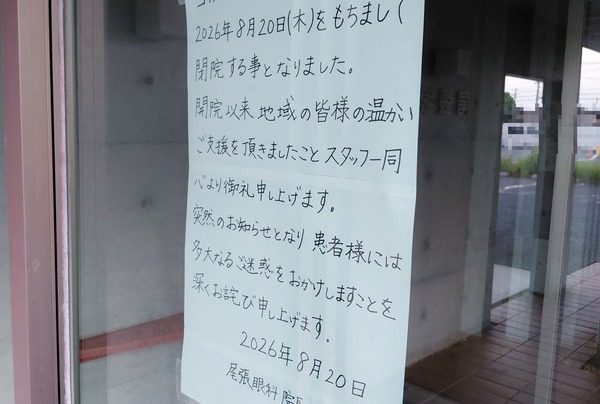 2026年8月20日(木)をもちまして
閉院する事となりました。
開院以来地域の皆様の温かい
ご支援を頂きましたことスタッフ一同
心より御礼申し上げます。
突然のお知らせとなり患者様には
多大なるご迷惑をおかけしますことを
深くお詫び申し上げます。
2026年8月20日
尾張眼科 院長